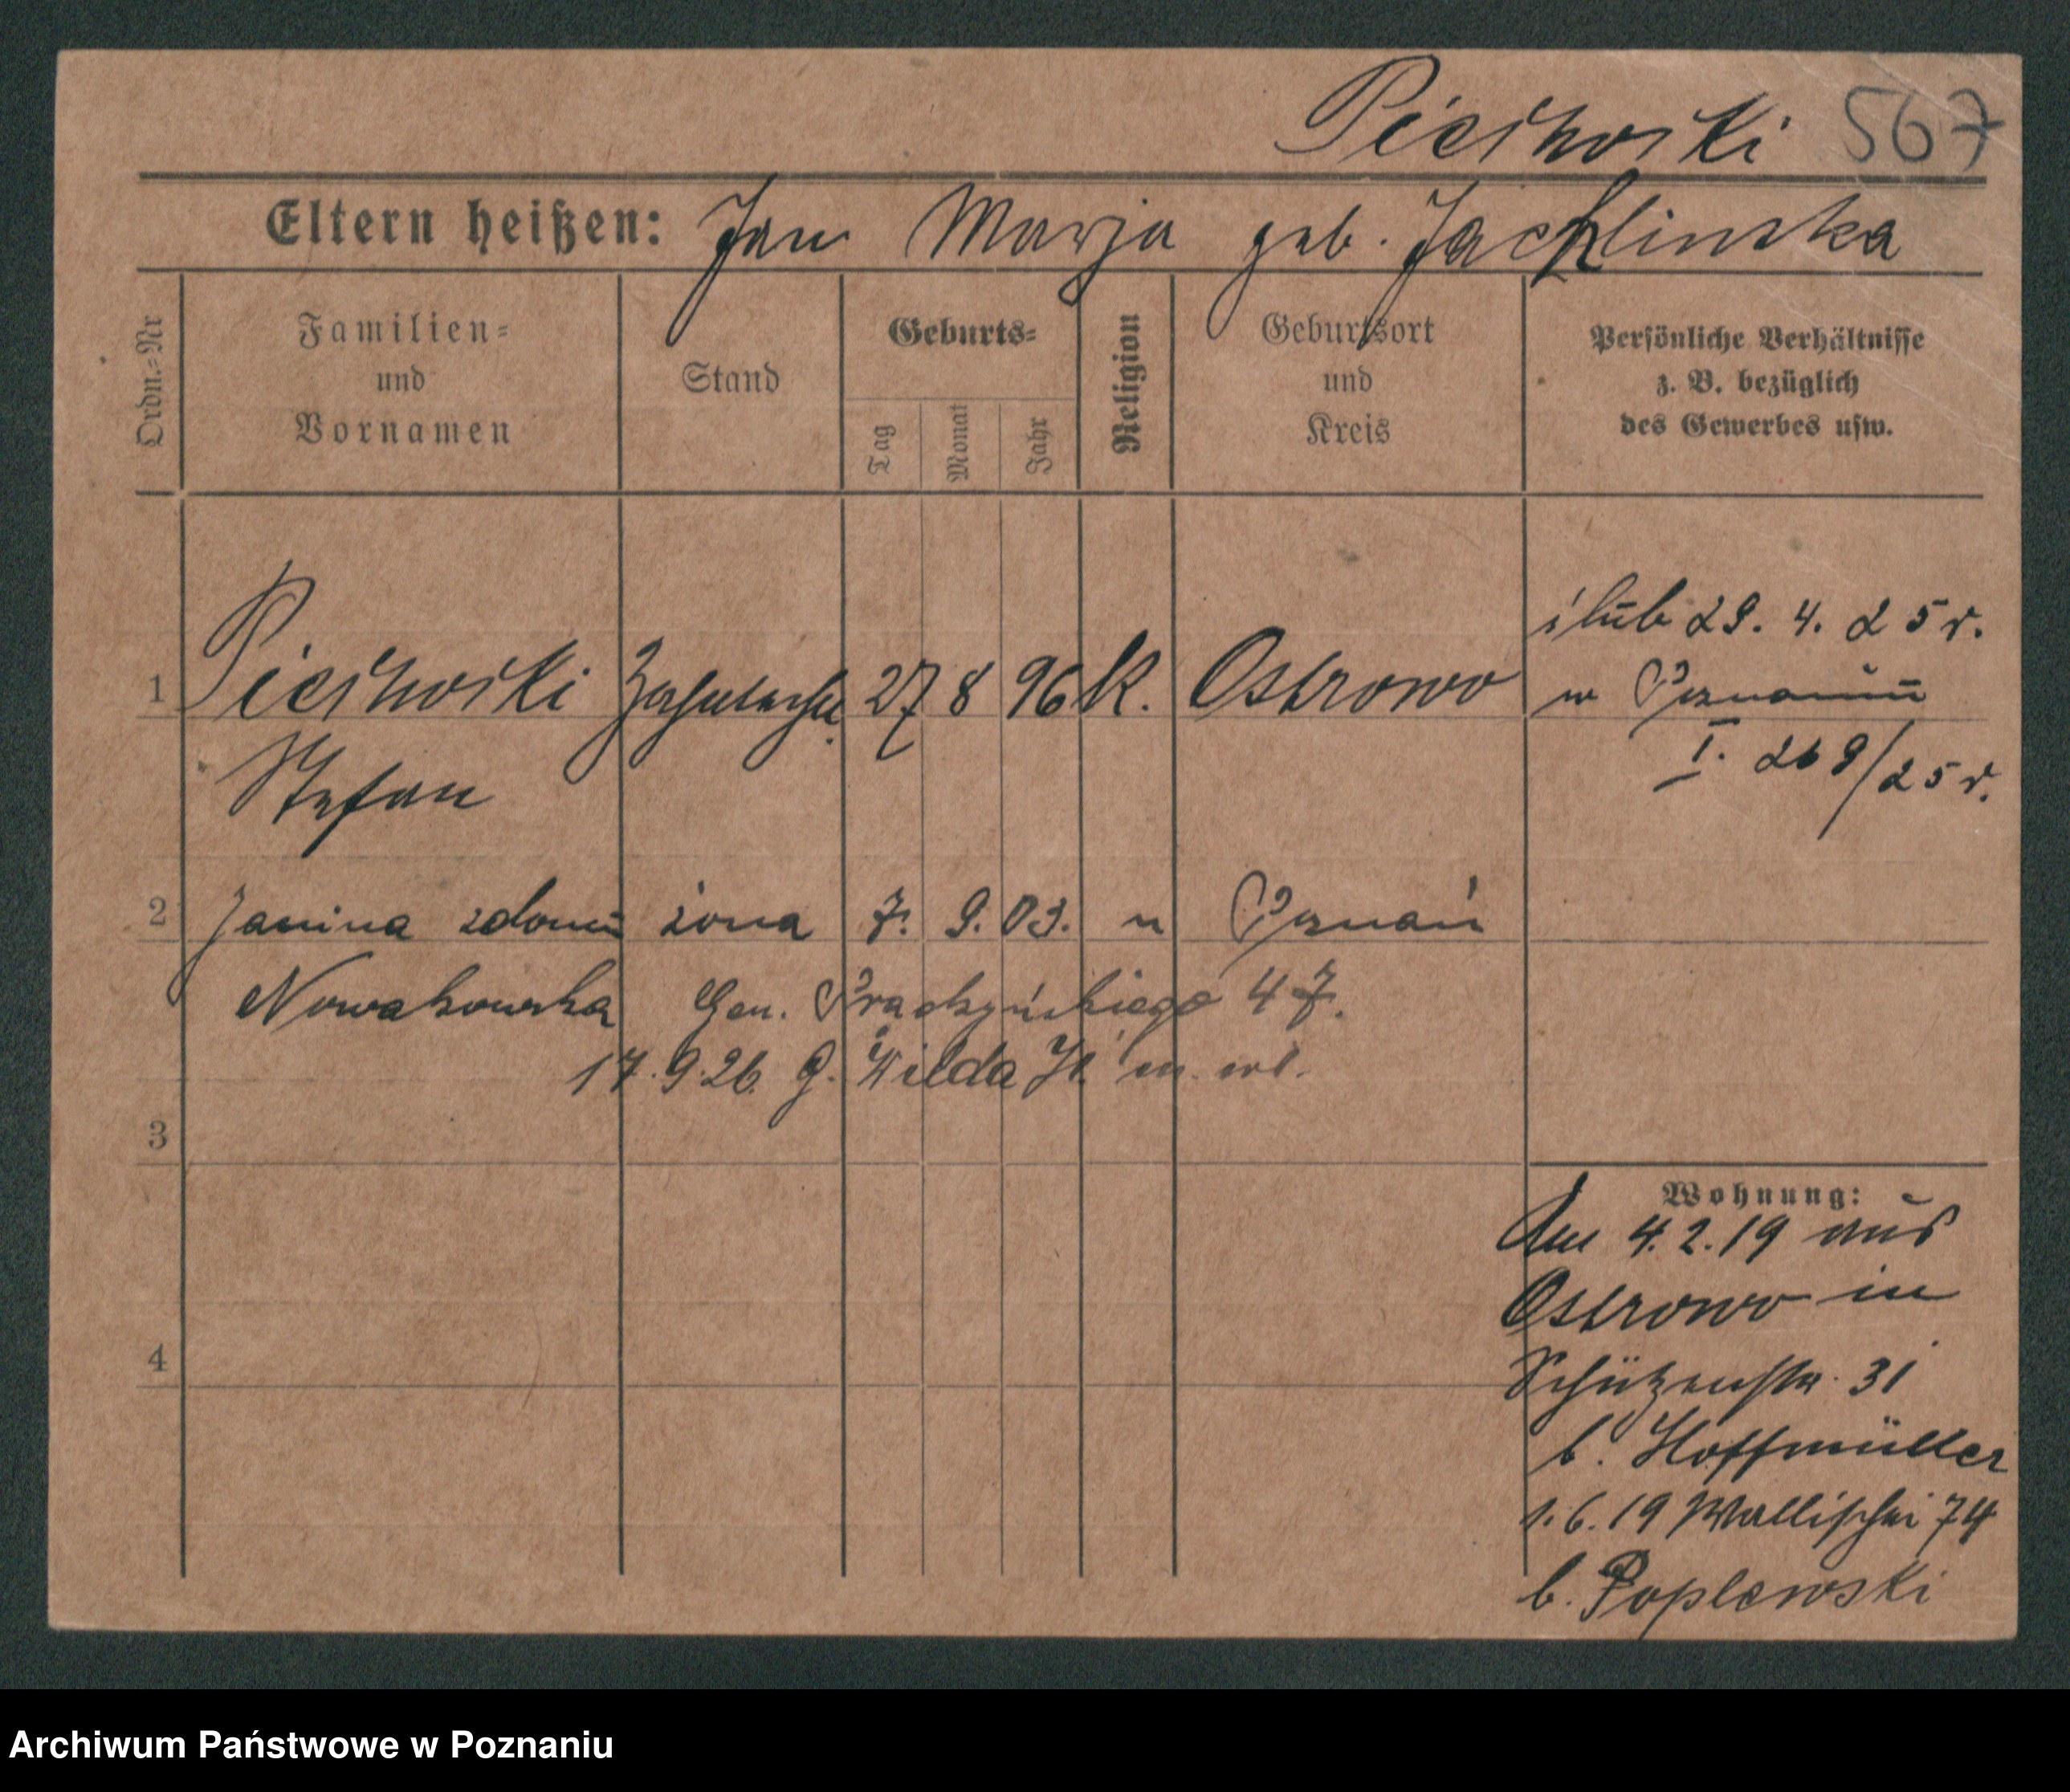 Piechorski 567
Eltern heißen: Jan Marja geb. Jacklinska
Ordn.=Nr
Familien=
und
Vornamen
Stand
Geburts=
Tag
Monat
Jahr
Religion
Geburtsort
und
Kreis
Persönliche Verhältnisse
z. B. bezüglich
des Gewerbes usw.
ślub 29. 4. 25 r.
1 27 8 96 K. Ostrowo w Poznaniu
Stefan I. 269/25 r.
2 Janina z domu żona 7. 9. 03. " Poznań
Nowakowska Gen. Prądzyńskiego 47.
17.9.26. G. Wilda
3
Wohnung:
Am 4.2.19 aus
Ostrowo in
4 Schützenstr. 31
b. Hoffmüller
1.6.19 Wallischei 74
b. Poplewski
Archiwum Państwowe w Poznaniu